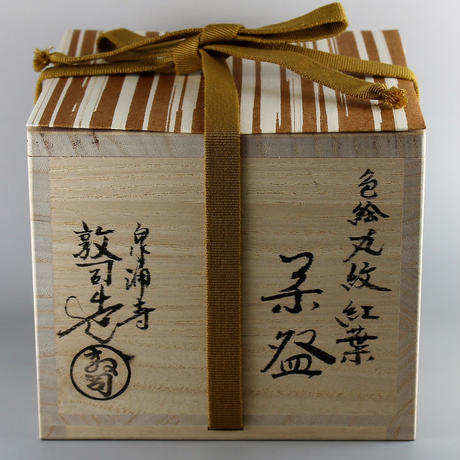 色絵丸紋紅葉
茶盌
泉涌寺
敦司造
敦司